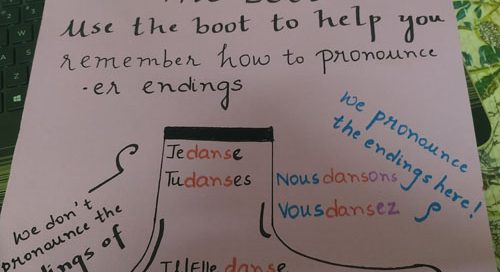 Use the boot to help you
remember how to pronounce
-er endings
we pronounce
the endings here!
Je danse
Tu danses
Nous dansons
Vous dansez
we don't
pronounce the
of
Il/Elle danse